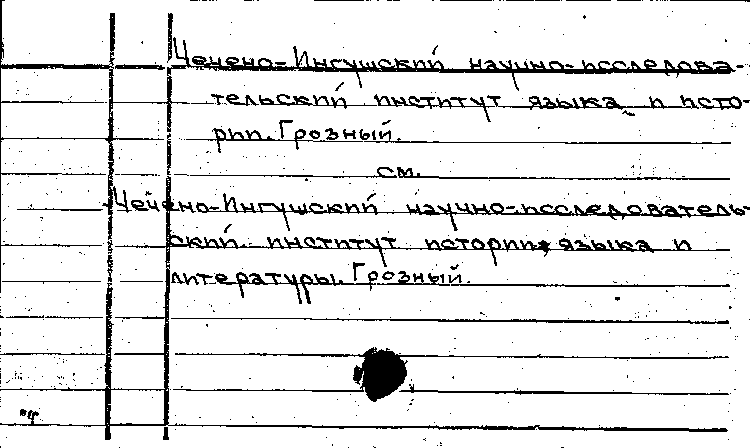 Чечено-Ингушский научно-исследова-
тельский институт языка и исто-
рии. Грозный.
см.
Чечено-Ингушский научно-исследователь-
ский институт истории, языка и
литературы. Грозный.